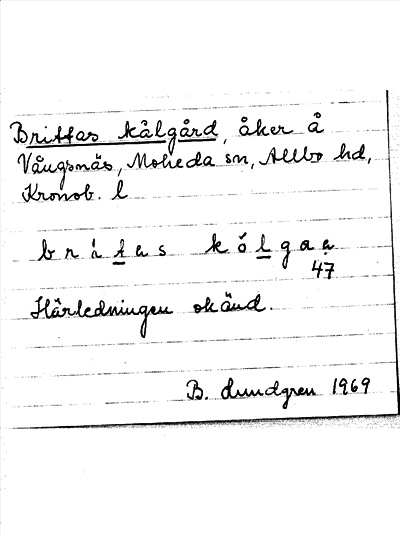 Brittas kålgård, åker å
Vångsnäs, Moheda sn, Allbo hd,
Kronob. l
brítas kólgaạ
47
Härledningen okänd.
B. Lundgren 1969